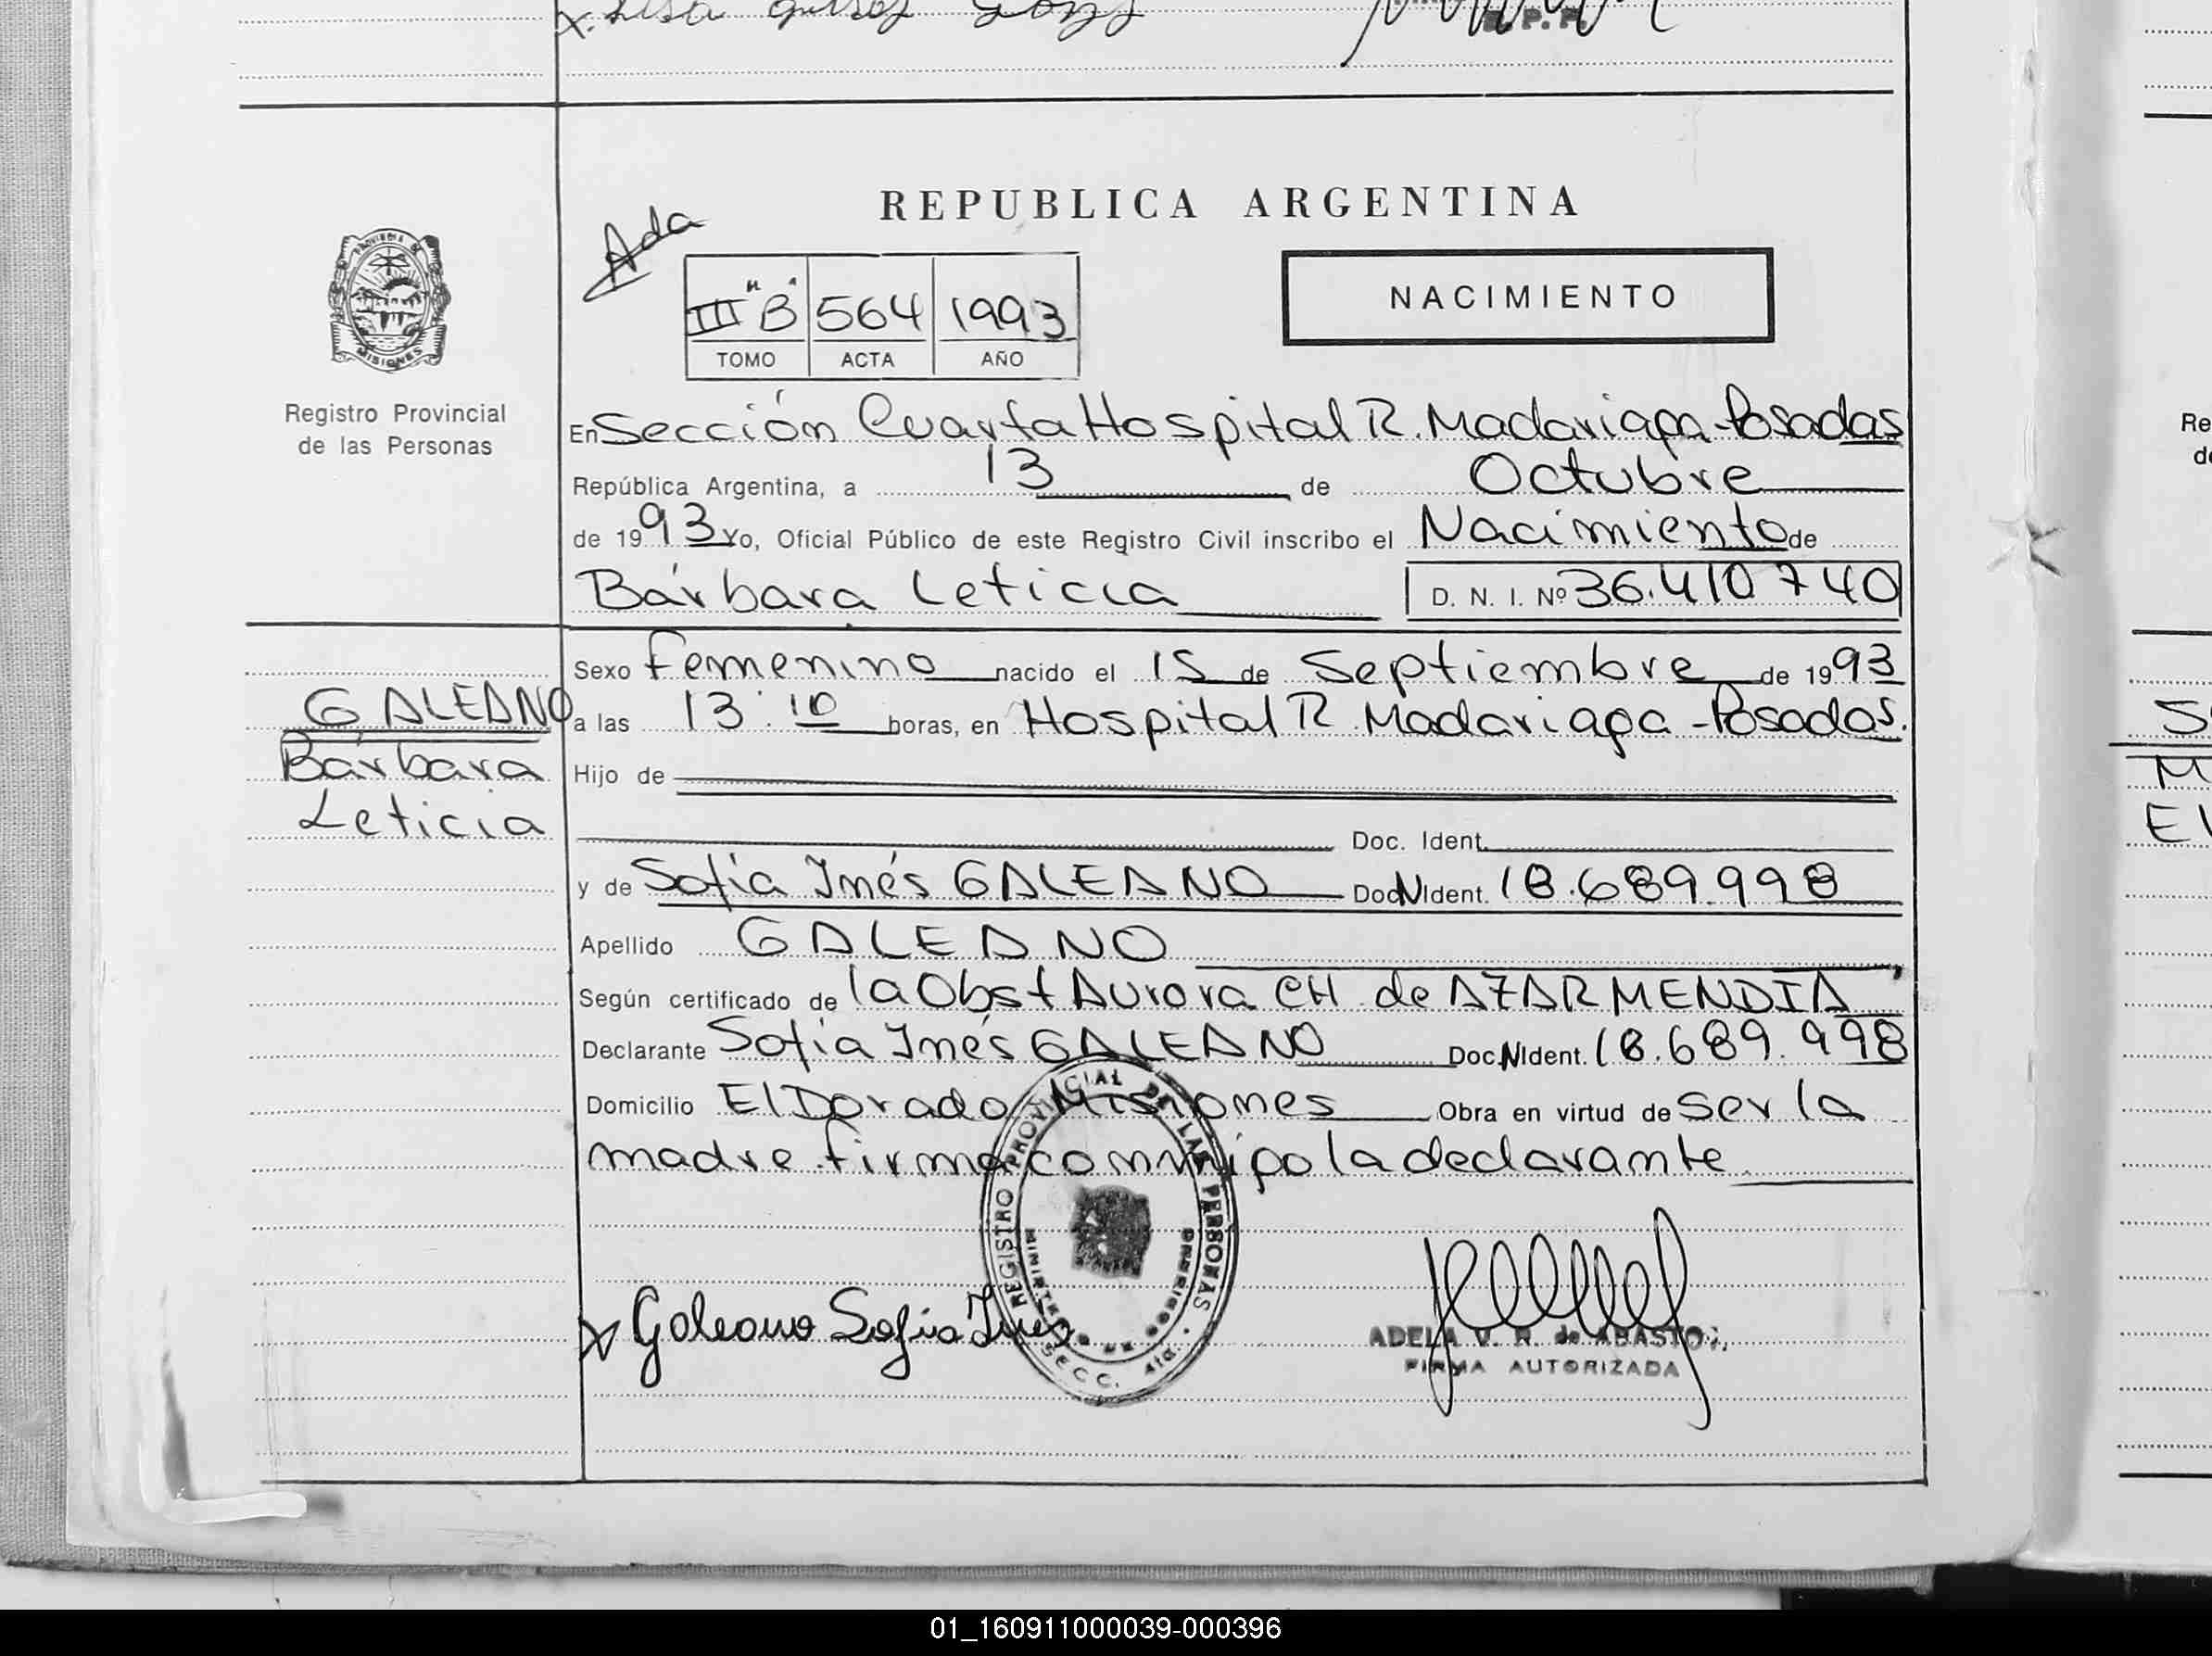 REPUBLICA ARGENTINA
Ada
III "B" 564 1993
TOMO ACTA AÑO
NACIMIENTO
PROVINCIA DE
MISIONES
Registro Provincial
de las Personas
En Sección Cuarta Hospital R. Madariaga - Posadas
República Argentina, a 13 de Octubre
de 1993 Yo, Oficial Público de este Registro Civil inscribo el Nacimiento de
Bárbara Leticia D. N. I. Nº 36.410740
Sexo femenino nacido el 15 de Septiembre de 1993
GALEANO
Bárbara
Leticia
a las 13:10 horas, en Hospital R. Madariaga - Posadas.
Hijo de
Doc. Ident.
y de Sofia Inés GALEANO Doc N Ident. 18.689.998
Apellido GALEANO
Según certificado de la Obst Aurora CH de AZARMENDIA
Declarante Sofia Inés GALEANO Doc. N Ident. 18.689.998
Domicilio El Dorado Misiones Obra en virtud de ser la
madre firma conmigo la declarante
REGISTRO PROVINCIAL DE LAS PERSONAS
SECC. 4ta.
x Galeano Sofia Ines
ADELA V. R. de ABASTO
FIRMA AUTORIZADA
01_160911000039-000396